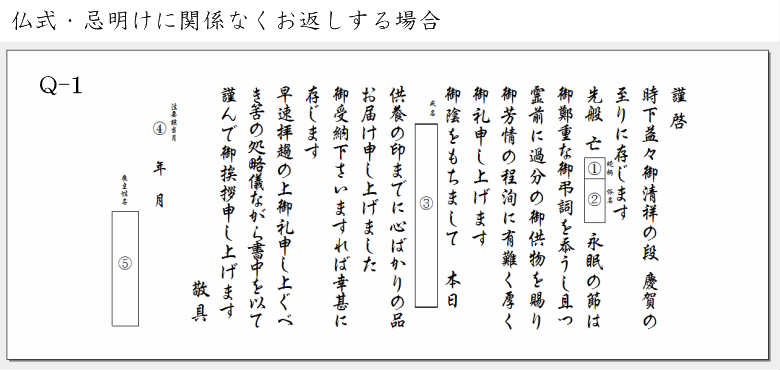 仏式・忌明けに関係なくお返しする場合
Q-1
謹啓
時下益々御清祥の段 慶賀の
至りに存じます
先般 亡 続柄 ① 俗名 ② 永眠の節は
御鄭重な御弔詞を忝うし且つ
霊前に過分の御供物を賜り
御芳情の程洵に有難く厚く
御礼申し上げます
御陰をもちまして 本日
戒名 ③
供養の印までに心ばかりの品
お届け申し上げました
御受納下さいますれば幸甚に
存じます
早速拝趨の上御礼申し上ぐべ
き筈の処略儀ながら書中を以て
謹んで御挨拶申し上げます
敬具
法要該当月
④ 年 月
喪主姓名
⑤